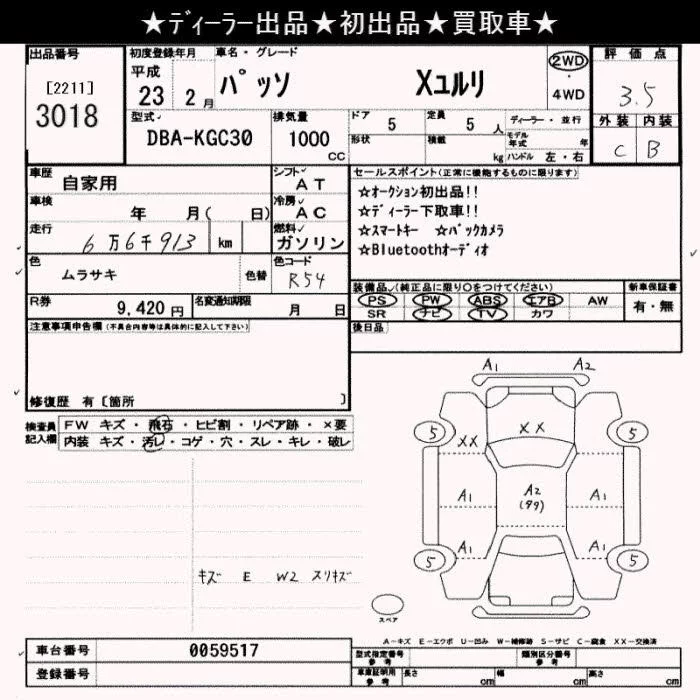 ★ディーラー出品★初出品★買取車★
出品番号
[2211]
3018
初度登録年月
平成
23 2 月
車名・グレード
パッソ Xユルリ
2WD
・
4WD
評価点
3.5
外装 内装
C B
型式
DBA-KGC30
排気量
1000
CC
ドア 5
定員 5 人
形状
積載 kg
ディーラー・並行
モデル
年式 年
ハンドル 左・右
車歴 自家用
シフト
AT
車検 年 月( 日)
冷房
AC
走行 6万6千913 km
燃料
ガソリン
色 ムラサキ 色替
色コード
R54
R券 9,420 円
名変通知期限 月 日
セールスポイント(正常に機能するものに限ります)
☆オークション初出品!!
☆ディーラー下取車!!
☆スマートキー ☆バックカメラ
☆Bluetoothオーディオ
装備品(純正品に限り○をつけてください)
PS PW ABS エアB AW
SR ナビ TV カワ
新車保証書
有・無
後日品
注意事項申告欄(不具合内容等は具体的に記入して下さい)
修復歴 有〔箇所 〕
検査員
記入欄
FW キズ・飛石・ヒビ割・リペア跡・×要
内装 キズ・汚レ・コゲ・穴・スレ・キレ・破レ
キズ E W2 スリキズ
A1 A2
5 5
XX XX
A1 A2 A1
A1 A1
5 5
スペア
A-キズ E-エクボ U-凹み W-補修跡 S-サビ C-腐食 XX-交換済
車台番号 0059517
登録番号
型式指定番号
参考
類別区分番号
参考
車庫証明用
参考
長さ cm
幅 cm
高さ cm